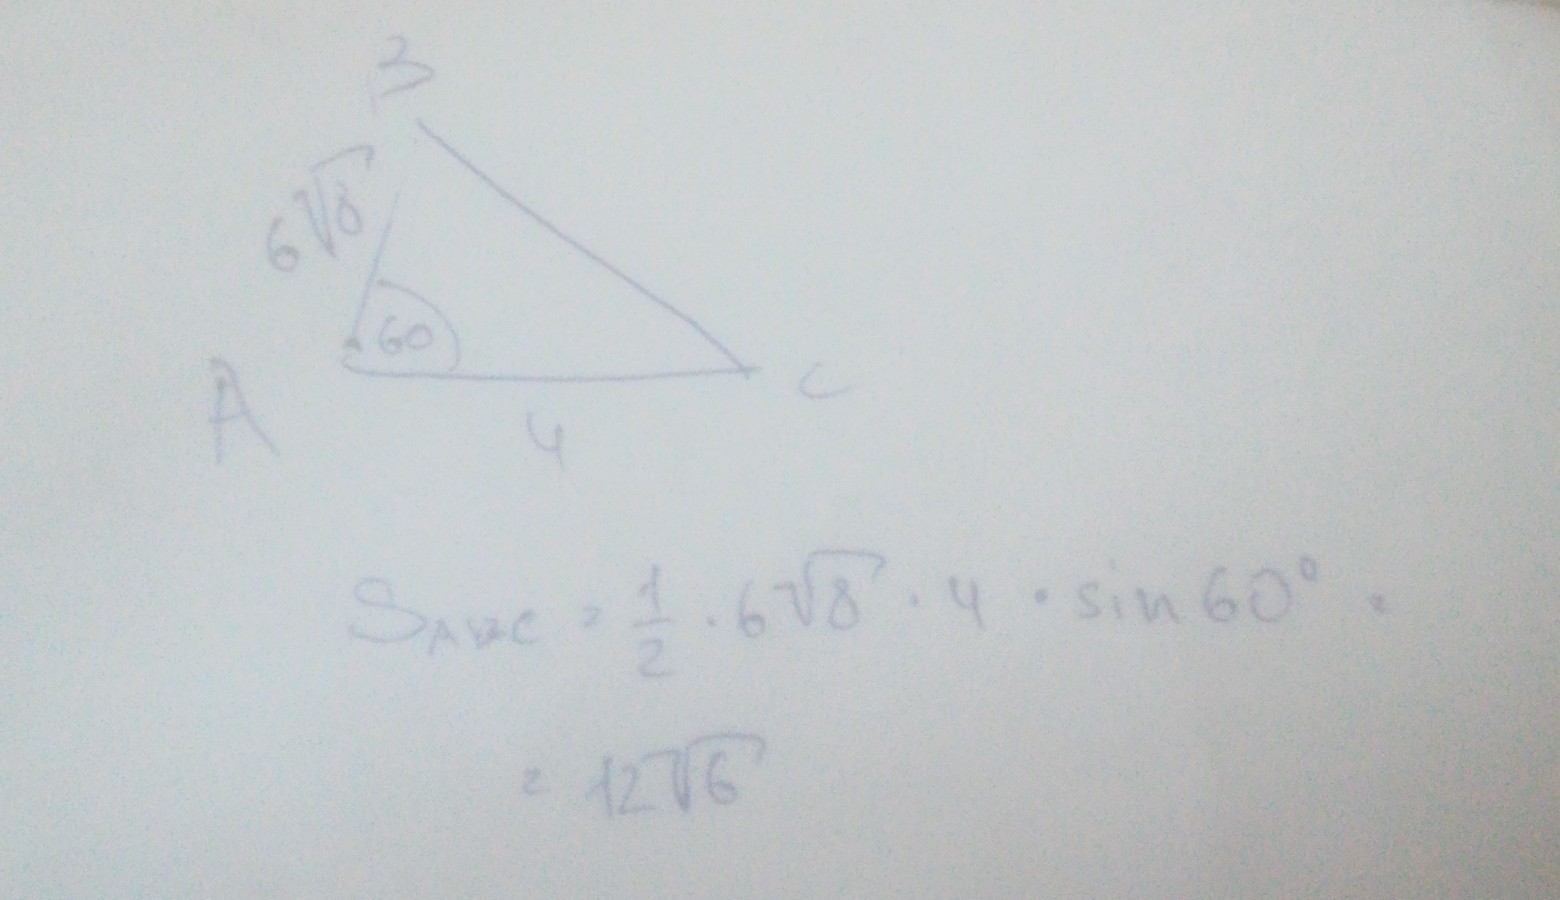 B
6√8
60
A
C
4
S_ABC = 1/2 · 6√8 · 4 · sin 60° =
= 12√6